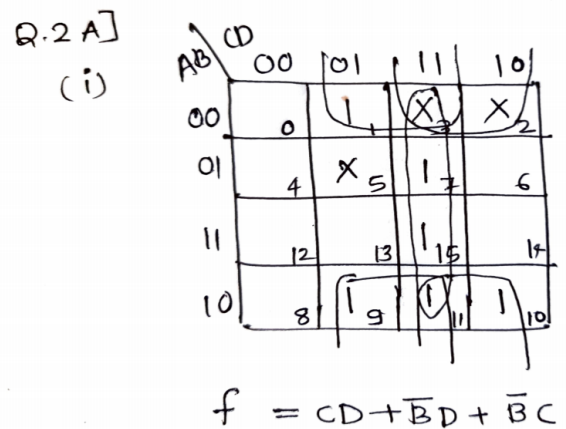 Q.2 A]
(i)
AB CD
00 01 11 10
00 0 1 1 X 3 X 2
01 4 X 5 1 7 6
11 12 13 1 15 14
10 8 1 9 1 11 1 10
f = CD + B̅D + B̅C